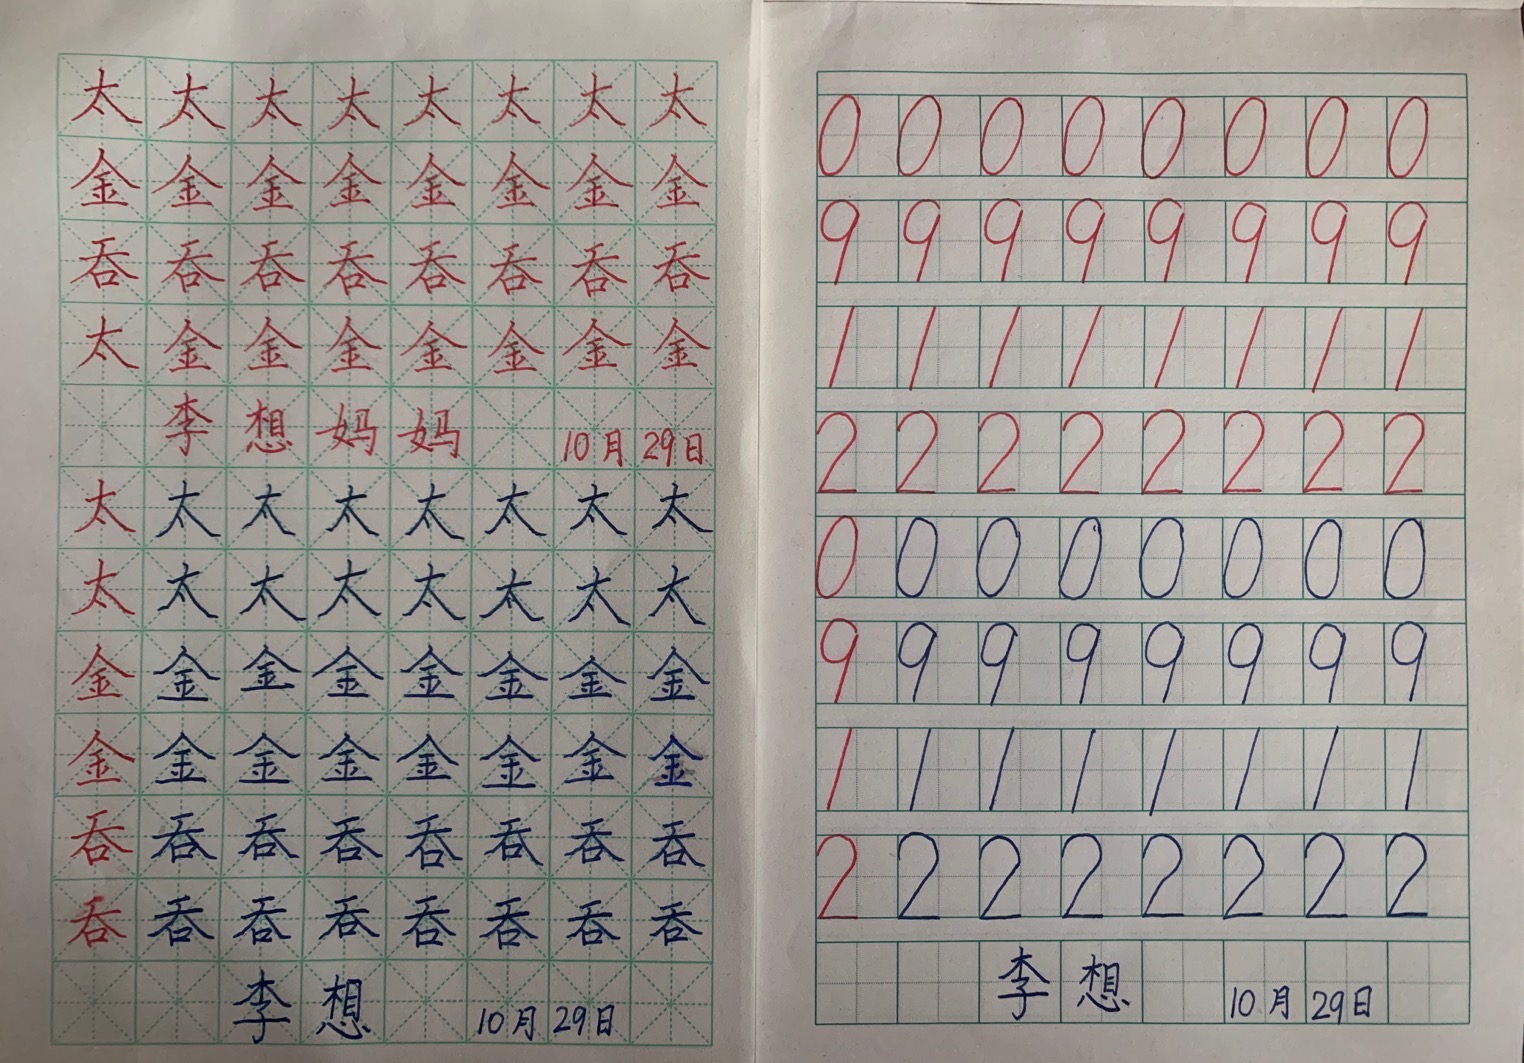 太太太太太太太太
金金金金金金金金
吞吞吞吞吞吞吞吞
太金金金金金金金
李想妈妈 10月29日
太太太太太太太太
太太太太太太太太
金金金金金金金金
金金金金金金金金
吞吞吞吞吞吞吞吞
吞吞吞吞吞吞吞吞
李想 10月29日
0 0 0 0 0 0 0 0
9 9 9 9 9 9 9 9
1 1 1 1 1 1 1 1
2 2 2 2 2 2 2 2
0 0 0 0 0 0 0 0
9 9 9 9 9 9 9 9
1 1 1 1 1 1 1 1
2 2 2 2 2 2 2 2
李想 10月29日